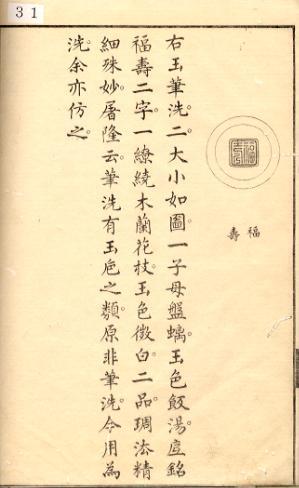 31
福壽
右玉筆洗。二大小如圖。一子母盤螭。玉色飯湯。底銘
福壽二字。一繚繞木蘭花枝。玉色微白。二品琱添精
細殊妙。屠隆云。筆洗有玉巵之類。原非筆洗。今用為
洗。余亦仿之。